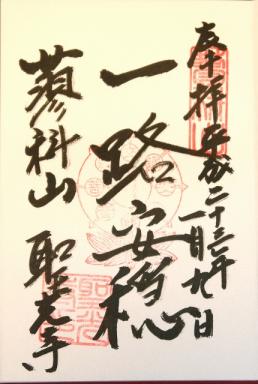 奉拝 平成二十三年
一月九日
一路安穏
蓼科山 聖光寺